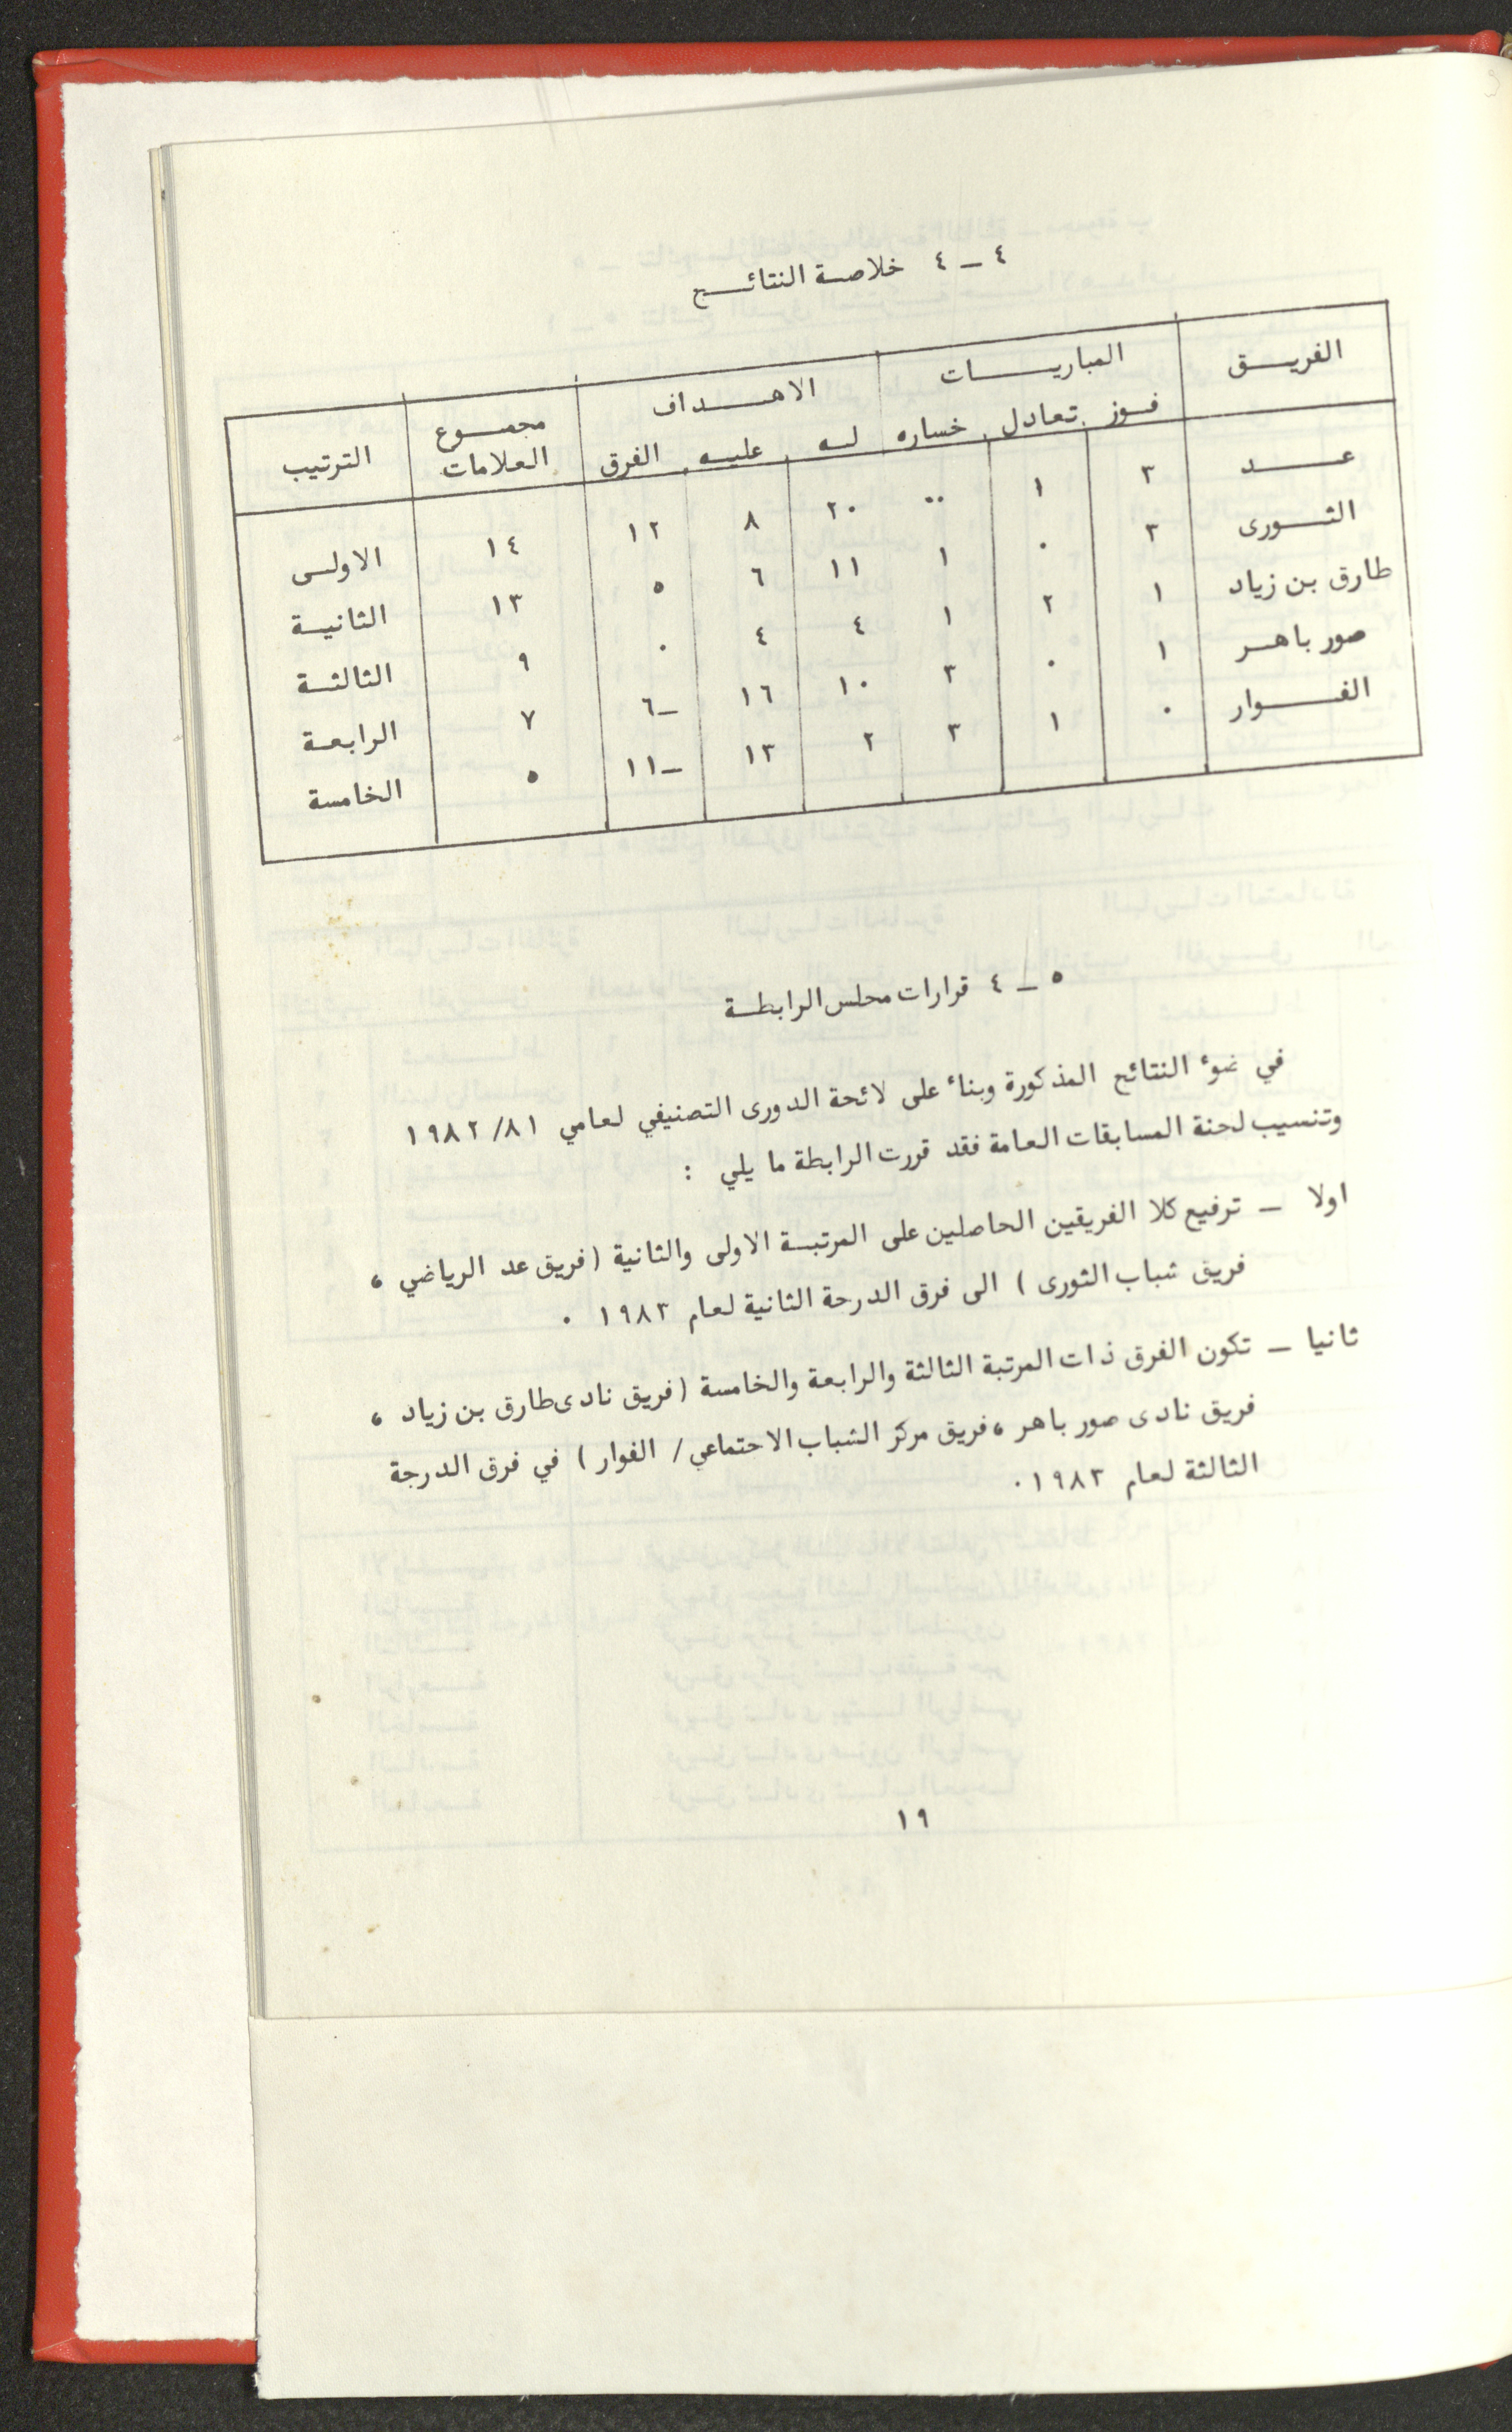 ٤ ــ ٤ خلاصة النتائج
الفريق المباريات الاهداف مجموع العلامات الترتيب
فوز تعادل خساره له عليه الفرق
عد ٣ ١ ٠٠ ٢٠ ٨ ١٢ ١٤ الاولى
الثورى ٣ ٠ ١ ١١ ٦ ٥ ١٣ الثانية
طارق بن زياد ١ ٢ ١ ٤ ٤ ٠ ٩ الثالثة
صور باهر ١ ٠ ٣ ١٠ ١٦ ــ٦ ٧ الرابعة
الفوار ٠ ١ ٣ ٢ ١٣ ــ١١ ٥ الخامسة
٥ ــ ٤ قرارات مجلس الرابطة
في ضوء النتائج المذكورة وبناء على لائحة الدورى التصنيفي لعامي ٨١/١٩٨٢
وتنسيب لجنة المسابقات العامة فقد قررت الرابطة ما يلي :
اولا ــ ترفيع كلا الفريقين الحاصلين على المرتبة الاولى والثانية (فريق عد الرياضي ،
فريق شباب الثورى ) الى فرق الدرجة الثانية لعام ١٩٨٣ ٠
ثانيا ــ تكون الفرق ذات المرتبة الثالثة والرابعة والخامسة (فريق نادى طارق بن زياد ،
فريق نادى صور باهر ،فريق مركز الشباب الاجتماعي/ الفوار ) في فرق الدرجة
الثالثة لعام ١٩٨٣٠
١٩